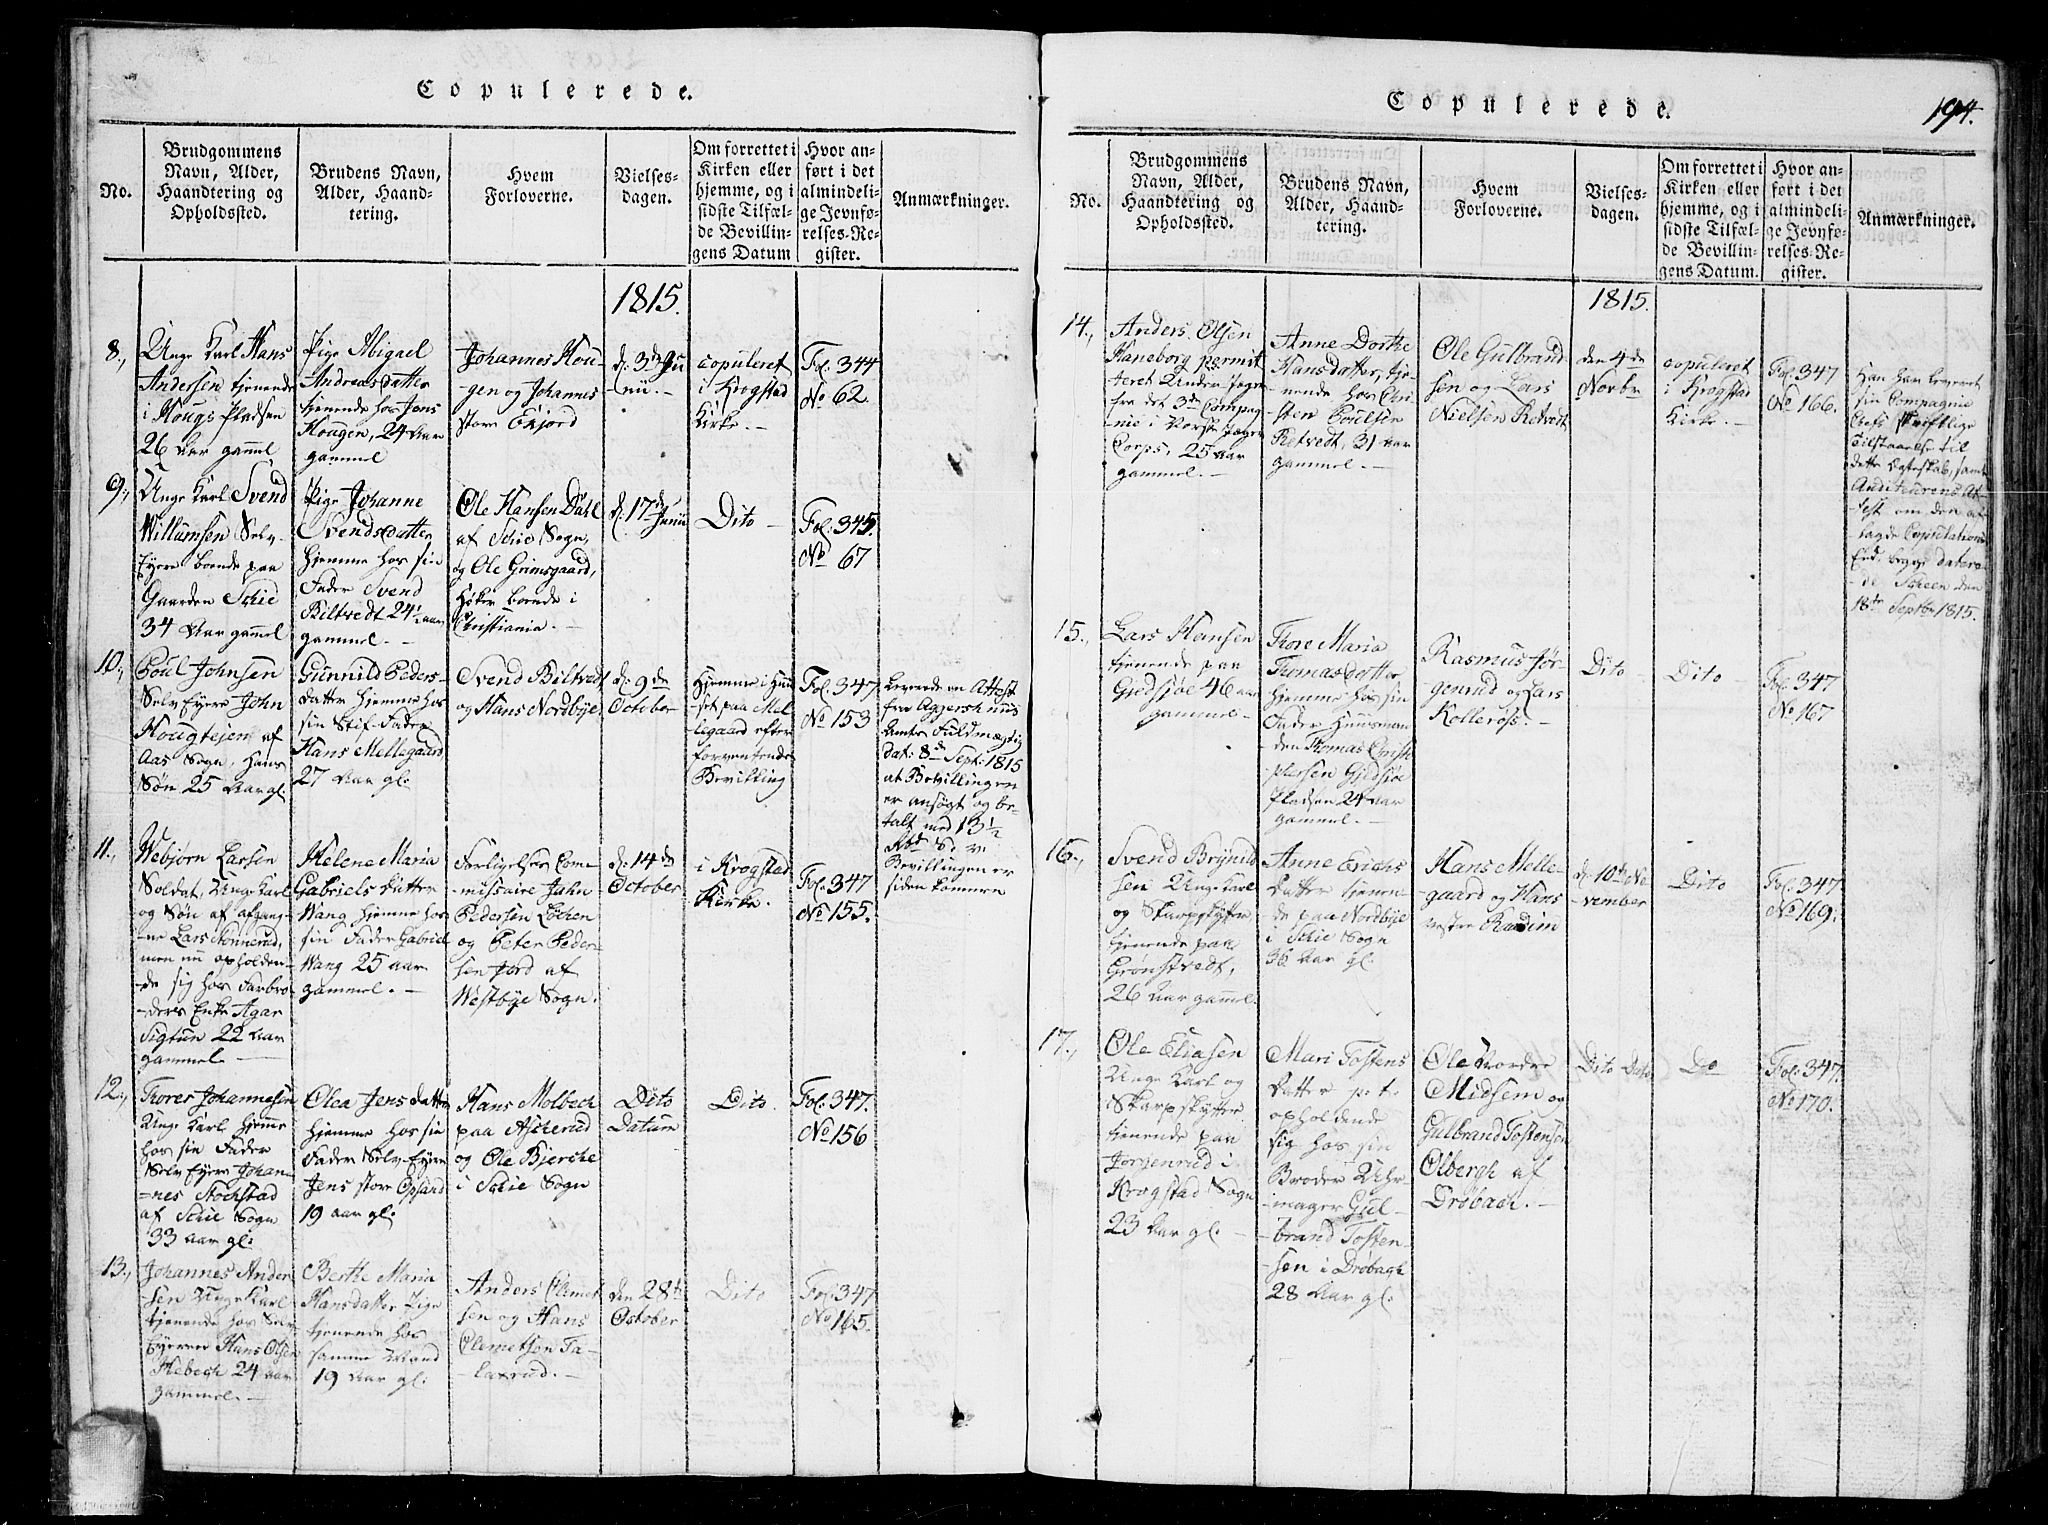 Copulerede.
No.
Brudgommens
Navn, Alder,
Haandtering og
Opholdssted.
Brudens Navn,
Alder, Haand-
tering.
Hvem
Forloverne.
Vielses-
dagen.
Om forrettet i
Kirken eller
hjemme, og i
sidste Tilfæl-
de Bevillin-
gens Datum
Hvor an-
ført i det
almindeli-
ge Jevnfø-
relses-Re-
gister.
Anmærkninger.
1815.
8.,
Unge Karl Hans
Andersen tjenende
i Hougs Pladsen
26 Aar gammel
Pige Abigael
Andreasdatter
tjenende hos Jens
Hougen, 24 Aar
gammel
Johannes Hou-
gen og Johannes
store Ekjord
d: 3de Ju
nii.-
copuleret
i Krogstad
Kirke.-
Fol: 344
No 62.
9.,
Unge Karl Svend
Willumsen Selv-
Eyer boende paa
Gaarden Schie
34 Aar gammel
Pige Johanne
Svendsdatter
hjemme hos sin
Fader Svend
Biltvedt 24½ aar
gammel.-
Ole Hansen Dahl
af Schie Sogn,
og Ole Grimsgaard,
Høker boende i
Christiania.-
d: 17de Junii
Dito -
Fol: 345.
No 67
10.,
Poul Johnsen
Selv Eyer John
Hougtejen af
Aas Sogn, Hans
Søn 25 Aar gl.
Gunnild Peders-
datter hjemme hos
sin Stif-Fader
Hans Mellegaard
27 Aar gl.
Svend Biltvedt
og Hans Nordbye
d: 9de
October
Hjemme i Huu
set paa Mel
legaard efter
forventende
Bevilling
Fol: 347
No 153
Leverede en Attest
fra Aggershuus
Amts Fuldmægtig
dat: 8de Sept: 1815
at Bevillingen
er ansøgt og be-
talt med 13½
Rbd S.V.
Bevillingen er
siden kommen
11.,
Webjørn Larsen
Soldat, Unge Karl
og Søn af afgang-
ne Lars Konnerud,
men nu opholden-
de sig hos Farbro-
ders Enke Agar
Sigtun 22 Aar
gammel -
Helene Maria
Gabriels datter
Wang hjemme hos
sin Fader Gabriel
Wang 25 aar
gammel.-
Forligelses Com-
missaire John
Pedersen Løchen
og Peter Peder-
sen Jord af
Westbye Sogn.
d: 14de
October
i Krogstad
Kirke.
Fol: 347
No 155.
12.,
Thores Johannesen
Unge Karl hjemme
hos sin Fader
Selv Eyer Johan-
nes Stochstad
af Schie Sogn
33 aar gl:
Olea Jens datter
hjemme hos sin
Fader Selv-Eyer
Jens store Opsand
19 aar gl:
Hans Molbech
paa Ascherud
og Ole Bjerche
i Schie Sogn
Dito
Datum
Dito.
Fol: 347.
No 156
13.,
Johannes Ander
sen Unge Karl
tjenende hos Selv
Eyeren Hans Olsen
Hebech 24 aar
gammel.-
Berthe Maria
Hansdatter Pige
tjenende hos
samme Mand
19 Aar gl.
Anders Clemet
sen og Hans
Clemetsen Ta-
laxrud.-
den 28de
October
Dito
Fol: 347
No 165.
Copulerede.
194.
No.
Brudgommens
Navn, Alder,
Haandtering og
Opholdssted.
Brudens Navn,
Alder, Haand-
tering.
Hvem
Forloverne.
Vielses-
dagen.
Om forrettet i
Kirken eller
hjemme, og i
sidste Tilfæl-
de Bevillin-
gens Datum.
Hvor an-
ført i det
almindeli-
ge Jevnfø-
relses-Re-
gister.
Anmærkninger.
1815.
14.,
Anders Olsen
Haneborg permit
teret Under Jæger
fra det 3de Compag
nie i Norske Jæger
Corps, 25 aar
gammel.-
Anne Dorthe
Hansdatter, tje-
nende hos Chri-
sten Poulsen
Retvedt, 31 aar
gammel.-
Ole Gulbrand
sen og Lars
Nielsen Retvedt
den 4de
Novbr
copuleret
i Krogstad
Kirke.-
Fol: 347
No 166.
Han har leveret
sin Compagnie
Chefs skriftlige
Tilstaaelse til
dette Egteskab, samt
Auditeurens At-
test om den af
lagde Copulations
Eed, begge datere-
de Scheen den
18de Septbr 1815.
15.,
Lars Hansen
tjenende paa
Gjedsjøe 46 aar
gammel.-
Thore Maria
Thomas datter,
hjemme hos sin
Fader Huusman
den Thomas Christo
phersen Gjedsjøe
Pladsen 24 aar
gammel.-
Rasmus Jør-
genrud og Lars
Kolleros.-
Dito -
Dito -
Fol: 347
No 167
16.,
Svend Brynild
sen Unge Karl
og Skarpskytter
tjenende paa
Grønstvedt,
26 Aar gammel.
Anne Erichs
datter tjenen-
de paa Nordbye
i Schie Sogn
36 Aar gl.
Hans Melle-
gaard og Hans
vestre Raadim
d: 10de No
vember
Dito
Fol: 347
No 169.
17.,
Ole Eliasen
Unge Karl og
Skarpskytter
tjenende paa
Jorgenrud i
Krogstad Sogn
23 Aar gl. -
Mari Tostens
datter p: t:
opholdende
sig hos sin
Broder Uhr
mager Gul-
brand Tosten-
sen i Drøbach
28 Aar gl.
Ole nordre
Midsem og
Gulbrand Tostensen
Olbergh af
Drøbach.-
Dito Dato
Do
Fol: 347.
No 170.